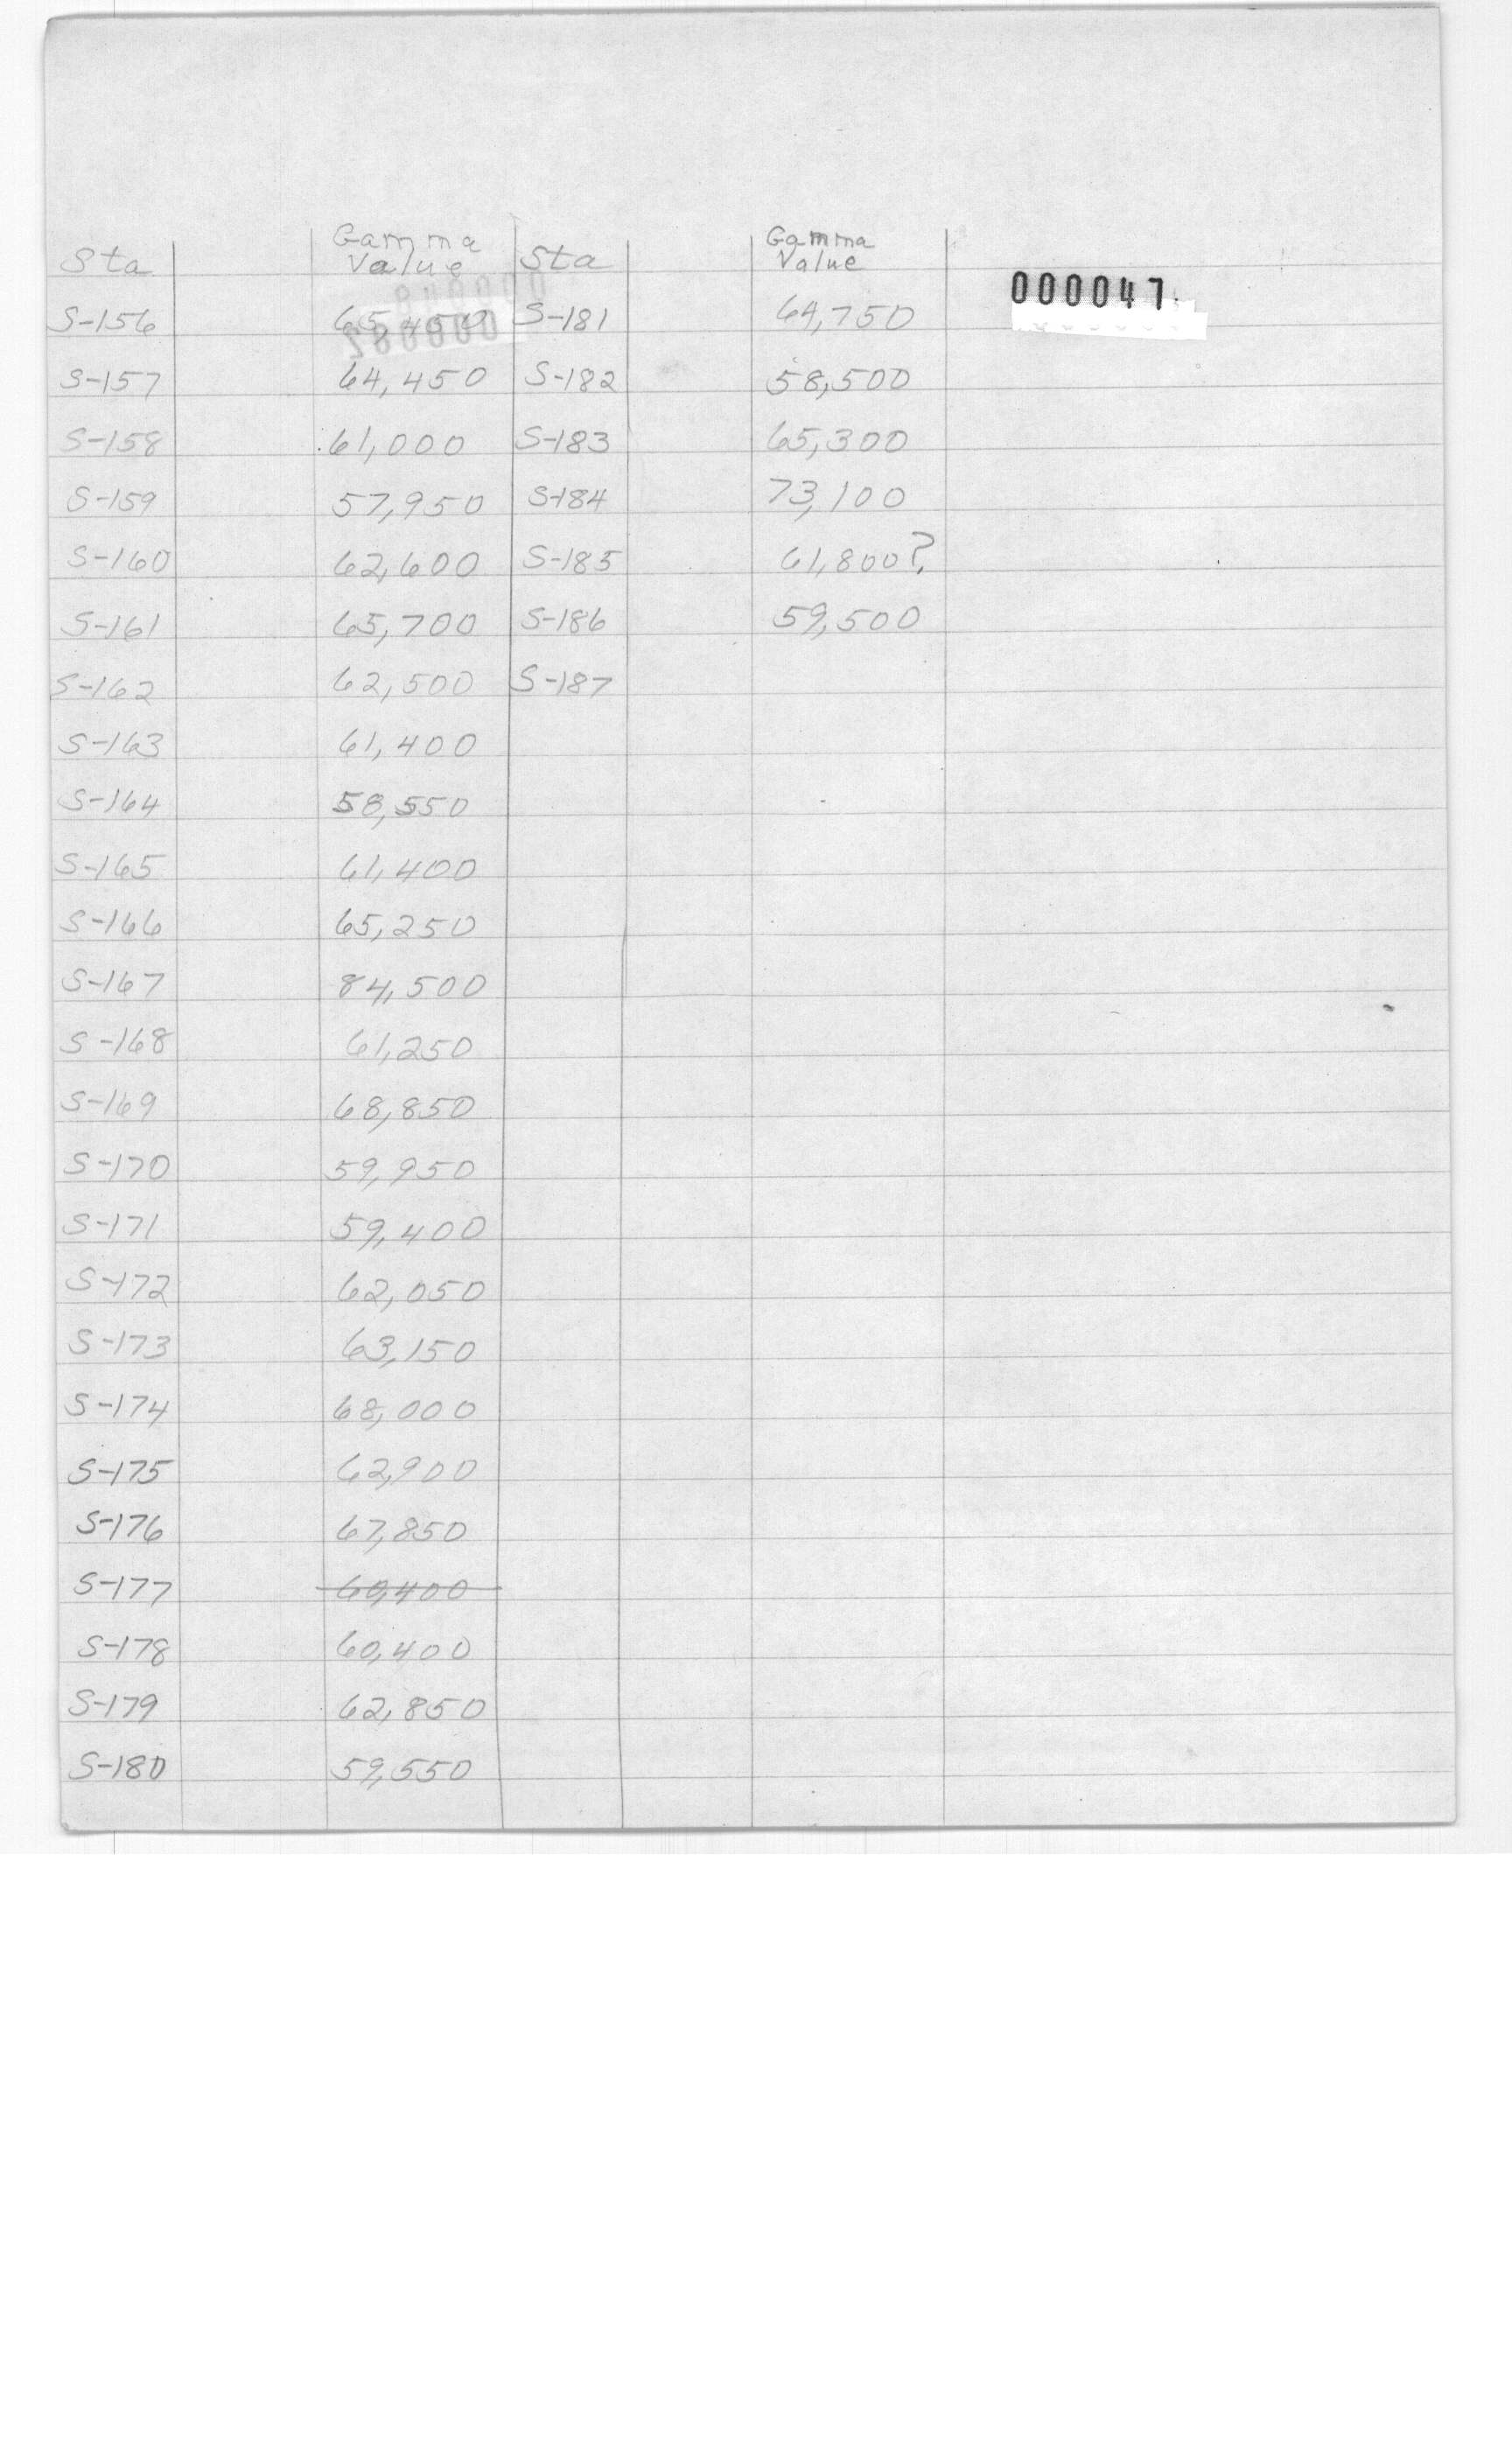 Sta Gamma Value Sta Gamma Value
000047
S-156 65,450 S-181 64,750
S-157 64,450 S-182 58,500
S-158 61,000 S-183 65,300
S-159 57,950 S-184 73,100
S-160 62,600 S-185 61,800?
S-161 65,700 S-186 59,500
S-162 62,500 S-187
S-163 61,400
S-164 58,550
S-165 61,400
S-166 65,250
S-167 84,500
S-168 61,250
S-169 68,850
S-170 59,950
S-171 59,400
S-172 62,050
S-173 63,150
S-174 68,000
S-175 62,900
S-176 67,850
S-177 60,400
S-178 60,400
S-179 62,850
S-180 59,550